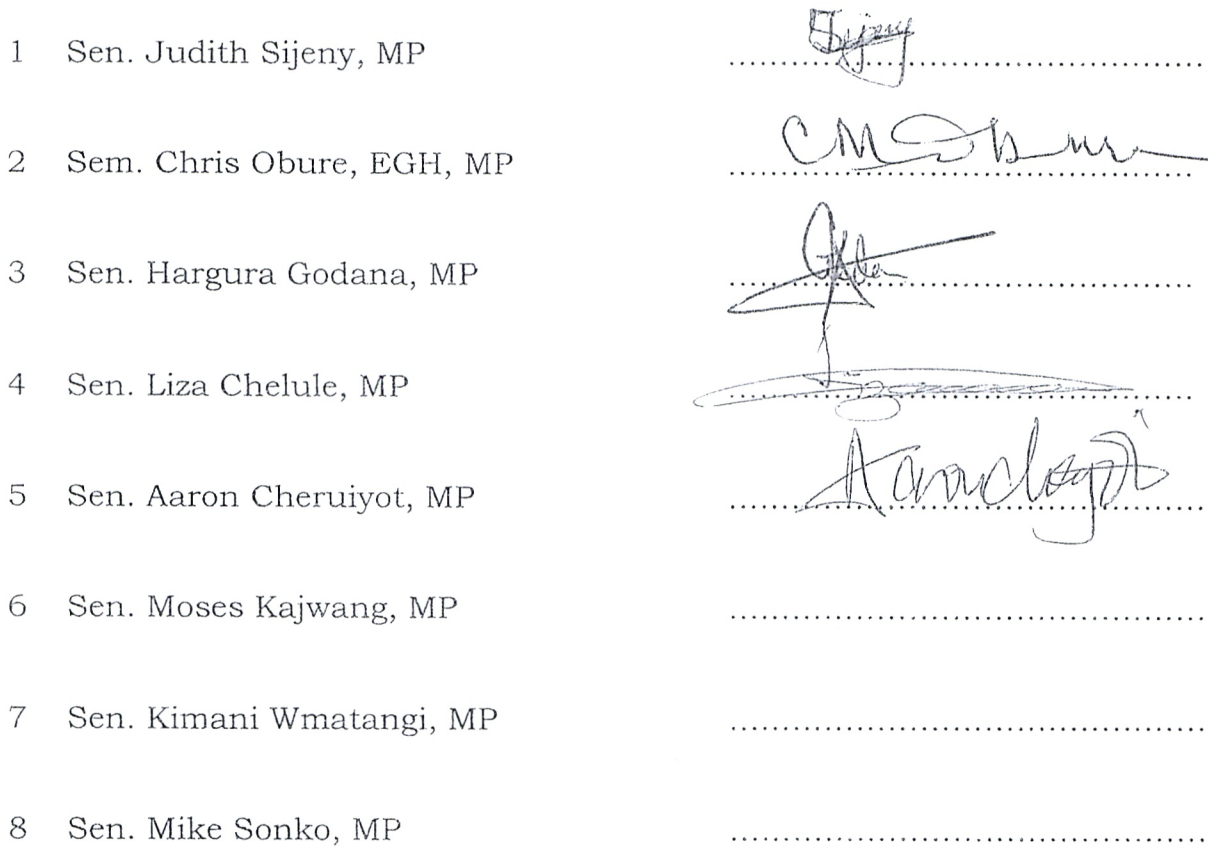 1 Sen. Judith Sijeny, MP Sijeny
2 Sem. Chris Obure, EGH, MP CM Obure
3 Sen. Hargura Godana, MP
4 Sen. Liza Chelule, MP
5 Sen. Aaron Cheruiyot, MP
6 Sen. Moses Kajwang, MP
7 Sen. Kimani Wmatangi, MP
8 Sen. Mike Sonko, MP